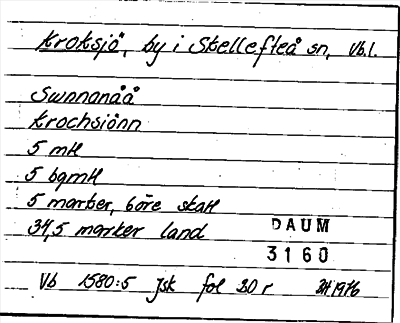 Kroksjö, by i Skellefteå sn, Vb.l.
Swnnanåå
Krochsiönn
5 mtl
5 bgmtl
5 marker, 6 öre skatt
34,5 marker land
DAUM
3160
Vb 1580:5 Jsk fol 30 r 1976